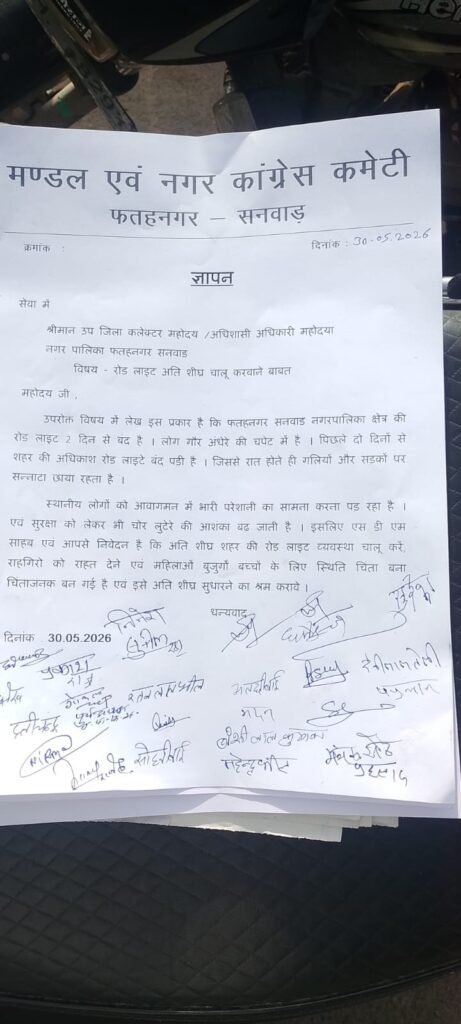 मण्डल एवं नगर कांग्रेस कमेटी
फतहनगर – सनवाड़
क्रमांक :
दिनांक : 30-05.2026
ज्ञापन
सेवा में
श्रीमान उप जिला कलेक्टर महोदय /अधिशासी अधिकारी महोदया
नगर पालिका फतहनगर सनवाड
विषय - रोड लाइट अति शीघ्र चालू करवाने बाबत
महोदय जी ,
उपरोक्त विषय में लेख इस प्रकार है कि फतहनगर सनवाड नगरपालिका क्षेत्र की
रोड लाइट 2 दिन से बद है । लोग गौर अंधेरे की चपेट में है । पिछले दो दिनों से
शहर की अधिकाश रोड लाइटे बंद पडी है । जिससे रात होते ही गलियाें और सडकों पर
सन्नाटा छाया रहता है ।
स्थानीय लोगों को आवागमन में भारी परेशानी का सामना करना पड रहा है ।
एवं सुरक्षा को लेकर भी चोर लुटेरे की आशका बढ जाती है । इसलिए एस डी एम
साहब एवं आपसे निवेदन है कि अति शीघ्र शहर की रोड लाइट व्यवस्था चालू करें,
राहगिरों को राहत देने एवं महिलाओं बुजुर्गो बच्चो के लिए स्थिति चिंता बना
चिंताजनक बन गई है एवं इसे अति शीघ्र सुधारने का श्रम करावे ।
धन्यवाद
दिनांक 30.05.2026
प्रकाश
मदन